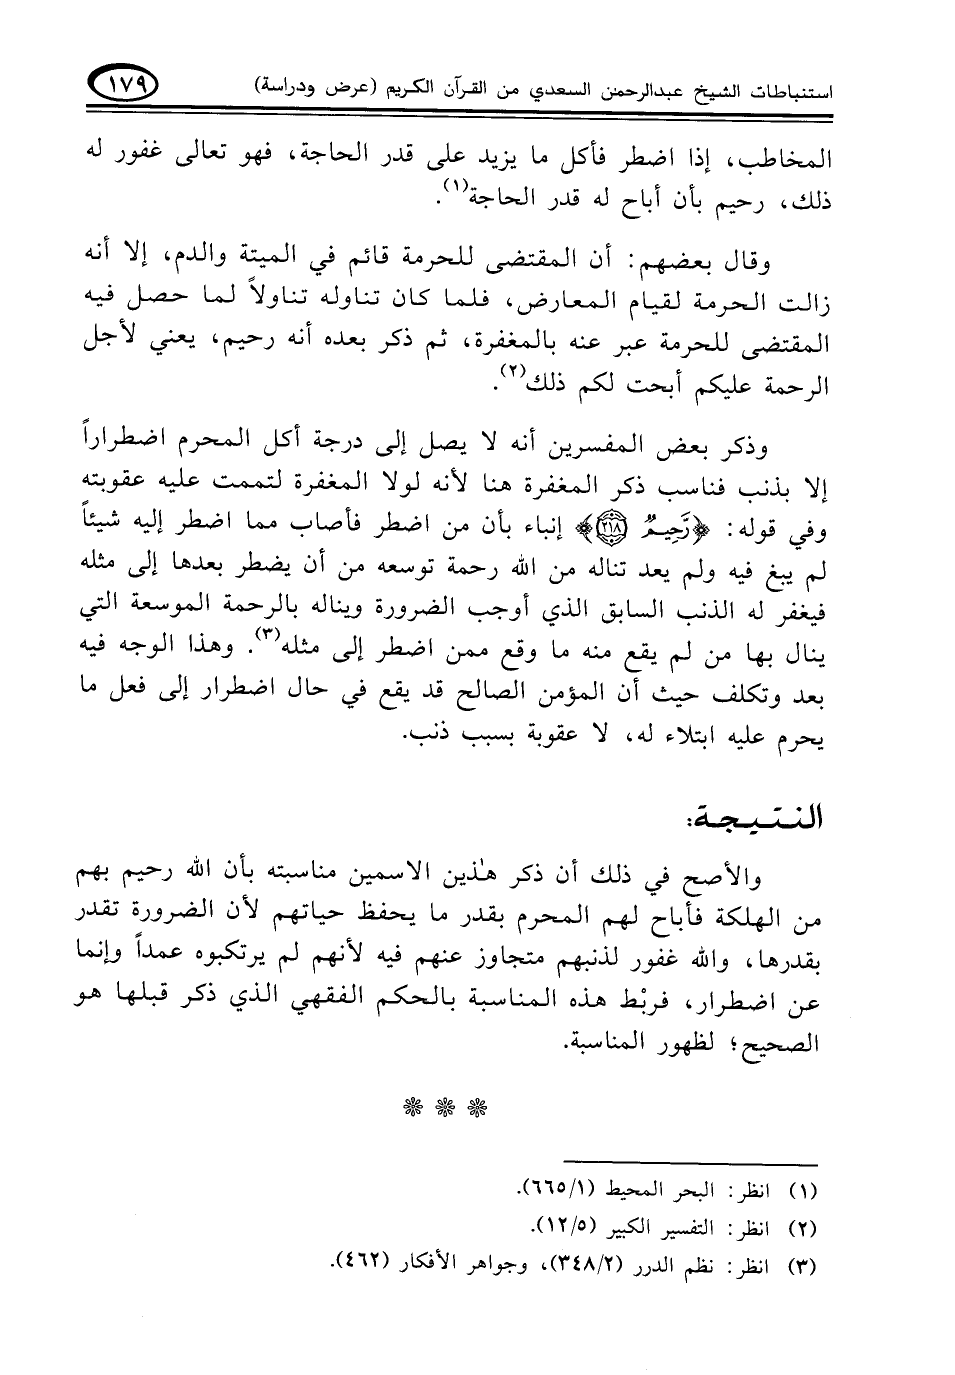 استنباطات الشيخ عبدالرحمن السعدي من القرآن الكريم (عرض ودراسة) ١٧٩
المخاطب، إذا اضطر فأكل ما يزيد على قدر الحاجة، فهو تعالى غفور له
ذلك، رحيم بأن أباح له قدر الحاجة(١).
وقال بعضهم: أن المقتضى للحرمة قائم في الميتة والدم، إلا أنه
زالت الحرمة لقيام المعارض، فلما كان تناوله تناولاً لما حصل فيه
المقتضى للحرمة عبر عنه بالمغفرة، ثم ذكر بعده أنه رحيم، يعني لأجل
الرحمة عليكم أبحت لكم ذلك(٢).
وذكر بعض المفسرين أنه لا يصل إلى درجة أكل المحرم اضطراراً
إلا بذنب فناسب ذكر المغفرة هنا لأنه لولا المغفرة لتممت عليه عقوبته
وفي قوله: ﴿رَّحِيمٌ ٢١٨﴾ إنباء بأن من اضطر فأصاب مما اضطر إليه شيئاً
لم يبغ فيه ولم يعد تناله من الله رحمة توسعه من أن يضطر بعدها إلى مثله
فيغفر له الذنب السابق الذي أوجب الضرورة ويناله بالرحمة الموسعة التي
ينال بها من لم يقع منه ما وقع ممن اضطر إلى مثله(٣). وهذا الوجه فيه
بعد وتكلف حيث أن المؤمن الصالح قد يقع في حال اضطرار إلى فعل ما
يحرم عليه ابتلاء له، لا عقوبة بسبب ذنب.
النتيجة:
والأصح في ذلك أن ذكر هٰذين الاسمين مناسبته بأن الله رحيم بهم
من الهلكة فأباح لهم المحرم بقدر ما يحفظ حياتهم لأن الضرورة تقدر
بقدرها، والله غفور لذنبهم متجاوز عنهم فيه لأنهم لم يرتكبوه عمداً وإنما
عن اضطرار، فربْط هذه المناسبة بالحكم الفقهي الذي ذكر قبلها هو
الصحيح؛ لظهور المناسبة.
(١) انظر: البحر المحيط (٦٦٥/١).
(٢) انظر: التفسير الكبير (١٢/٥).
(٣) انظر: نظم الدرر (٣٤٨/٢)، وجواهر الأفكار (٤٦٢).